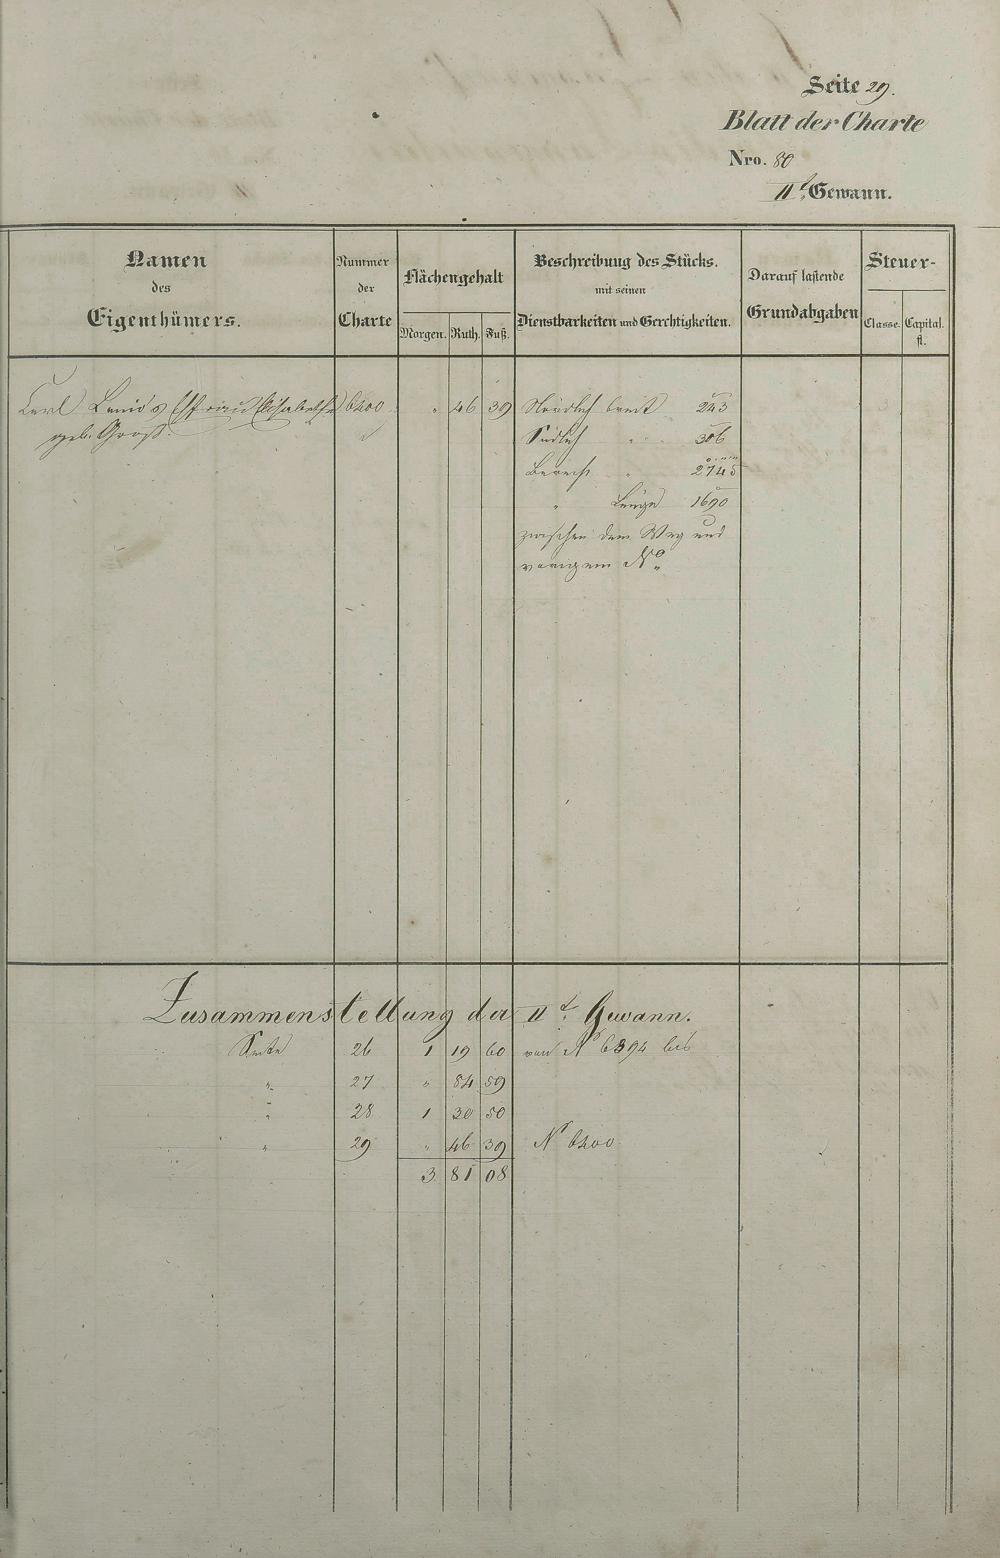 Seite 29.
Blatt der Charte
Nro. 80
IIt. Gewann.
Namen des Eigenthümers.
Nummer der Charte
Flächengehalt
Morgen. Ruth. Fuß.
Beschreibung des Stücks.
mit seinen
Dienstbarkeiten und Gerechtigkeiten.
Darauf lastende Grundabgaben
Steuer-
Classe. Capital. fl.
Carl Ehefrau Elisabetha 6400 " 46 39 Nördlich breit 243
geb. Groß.
Südlich " 306
Berech " 2745
" Länge 1690
zwischen dem Weg und
vorigem No.
Zusammenstellung der IIt. Gewann.
Seite 26 1 19 60 von No 6394 bis
" 27 " 84 59
" 28 1 30 50
" 29 " 46 39 No 6400
3 81 08